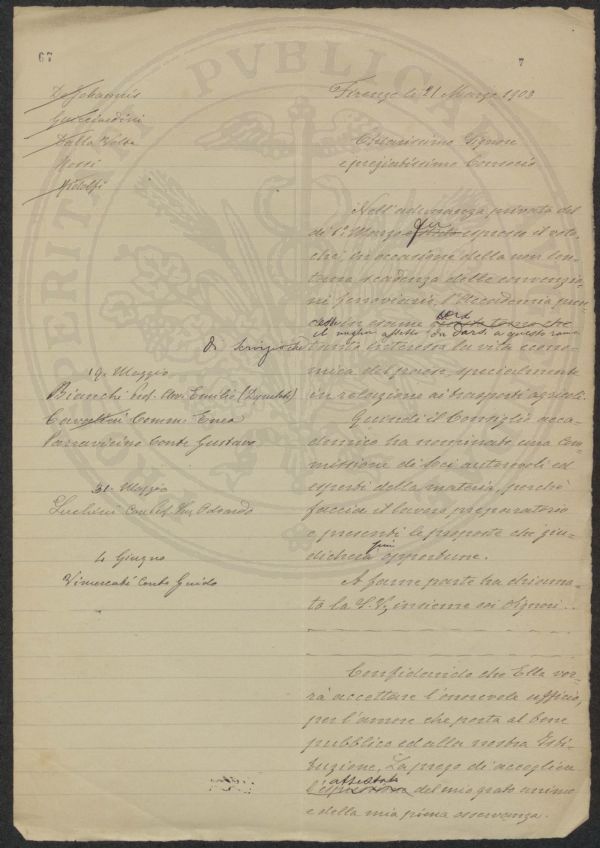 67
7
De Johannis
Guicciardini
Dalla Volta
Rossi
Ridolfi
Firenze li 21 Marzo 1903
Chiarissimo Signore
e pregiatissimo Consocio
Nell'adunanza privata del
dì 1º Marzo fu espresso il voto,
che, in occasione della non lon=
tana scadenza delle convenzio=
ni ferroviarie, l'Accademia
in esame
il miglior assetto da darsi a questo ramo
di servizio che tanto interessa la vita econo=
mica del paese, specialmente
in relazione ai trasporti agricoli.
Quindi il Consiglio acca=
demico ha nominato una com=
missione di soci autorevoli ed
esperti della materia, perchè
faccia il lavoro preparatorio
e presenti le proposte che giu=
dicherà più opportune.
A farne parte ha chiama=
to la S. V., insieme coi Signori...
19 Maggio
Bianchi Prof. Avv. Emilio
Cavalieri Comm. Enea
Parravicino Conte Gustavo
31 Maggio
Luchini Odoardo
4 Giugno
Vimercati Conte Guido
Confidando che Ella vor=
rà accettare l'onorevole ufficio,
per l'amore che porta al bene
pubblico ed alla nostra Isti=
tuzione, La prego di accogliere
del mio grato animo
e della mia piena osservanza.
PVBLICAE